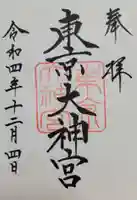 奉拝
東京大神宮
令和四年十二月四日